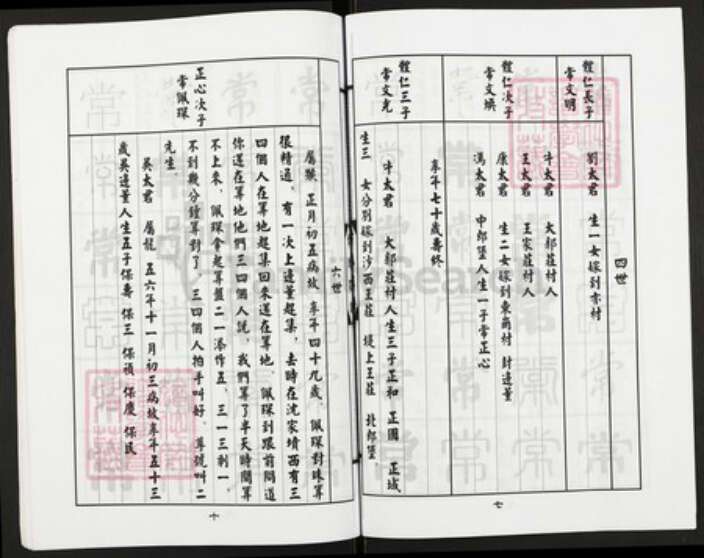 四世
體仁長子
常文明
劉太君 生一女嫁到亦村
體仁次子
常文煥
牛太君 大郝莊村人
王太君 王家莊村人
康太君 生二女嫁到東崗村 封邊董
馮太君 中郎堡人生一子常正心
享年七十歲壽終
體仁三子
常文光
牛太君 大郝莊村人生三子正和 正國 正域
生三 女分別嫁到沙西王莊 堤上王莊 北郎堡
七
六世
正心次子
常佩琛
屬猴 正月初五病故 享年四十九歲 佩琛對珠算
很精通,有一次上邊董趕集,去時在沈家墳西有三
四個人在算地趕集回來還在算地,佩琛到跟前問道
你還在算地他們三四個人說,我們算了半天時間算
不上來,佩琛拿起算盤二一添作五,三一三剩一,
不到幾分鐘算對了,三四個人拍手叫好,尊號叫二
先生
吳太君 屬龍 五六年十一月初三病故享年五十三
歲吳邊董人生五子保壽 保三 保禎 保慶 保民
十